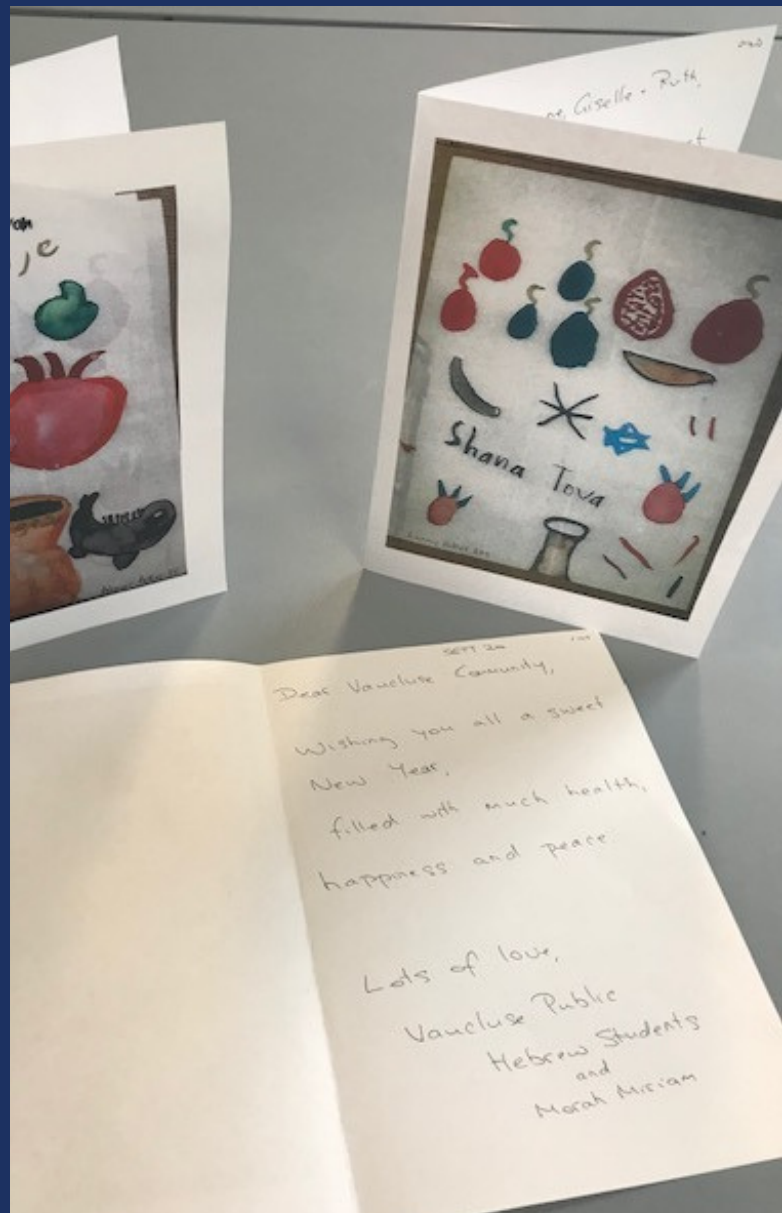 ne, Giselle + Ruth,
Shana Tova
SEPT 20
Dear Vaucluse Community,
Wishing you all a sweet
New Year,
filled with much health,
happiness and peace
Lots of love,
Vaucluse Public
Hebrew Students
and
Morah Miriam